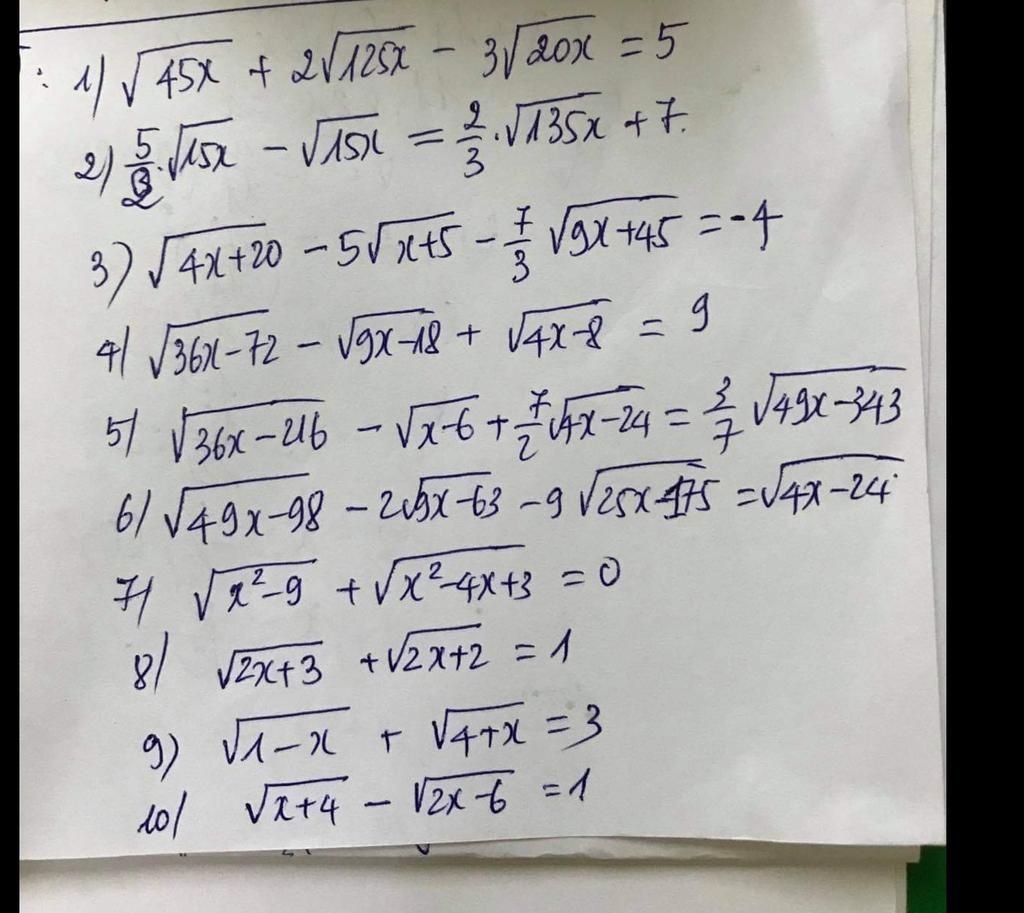 1) √45x + 2√125x - 3√20x = 5
2) 5/2·√15x - √15x = 2/3·√135x + 7.
3) √4x+20 - 5√x+5 - 7/3 √9x+45 = -4
4) √36x-72 - √9x-18 + √4x-8 = 9
5) √36x-216 - √x-6 + 7/2 √4x-24 = 3/7 √49x-343
6) √49x-98 - 2√9x-63 - 9√25x-175 = √4x-24
7) √x²-9 + √x²-4x+3 = 0
8) √2x+3 + √2x+2 = 1
9) √1-x + √4+x = 3
10) √x+4 - √2x-6 = 1